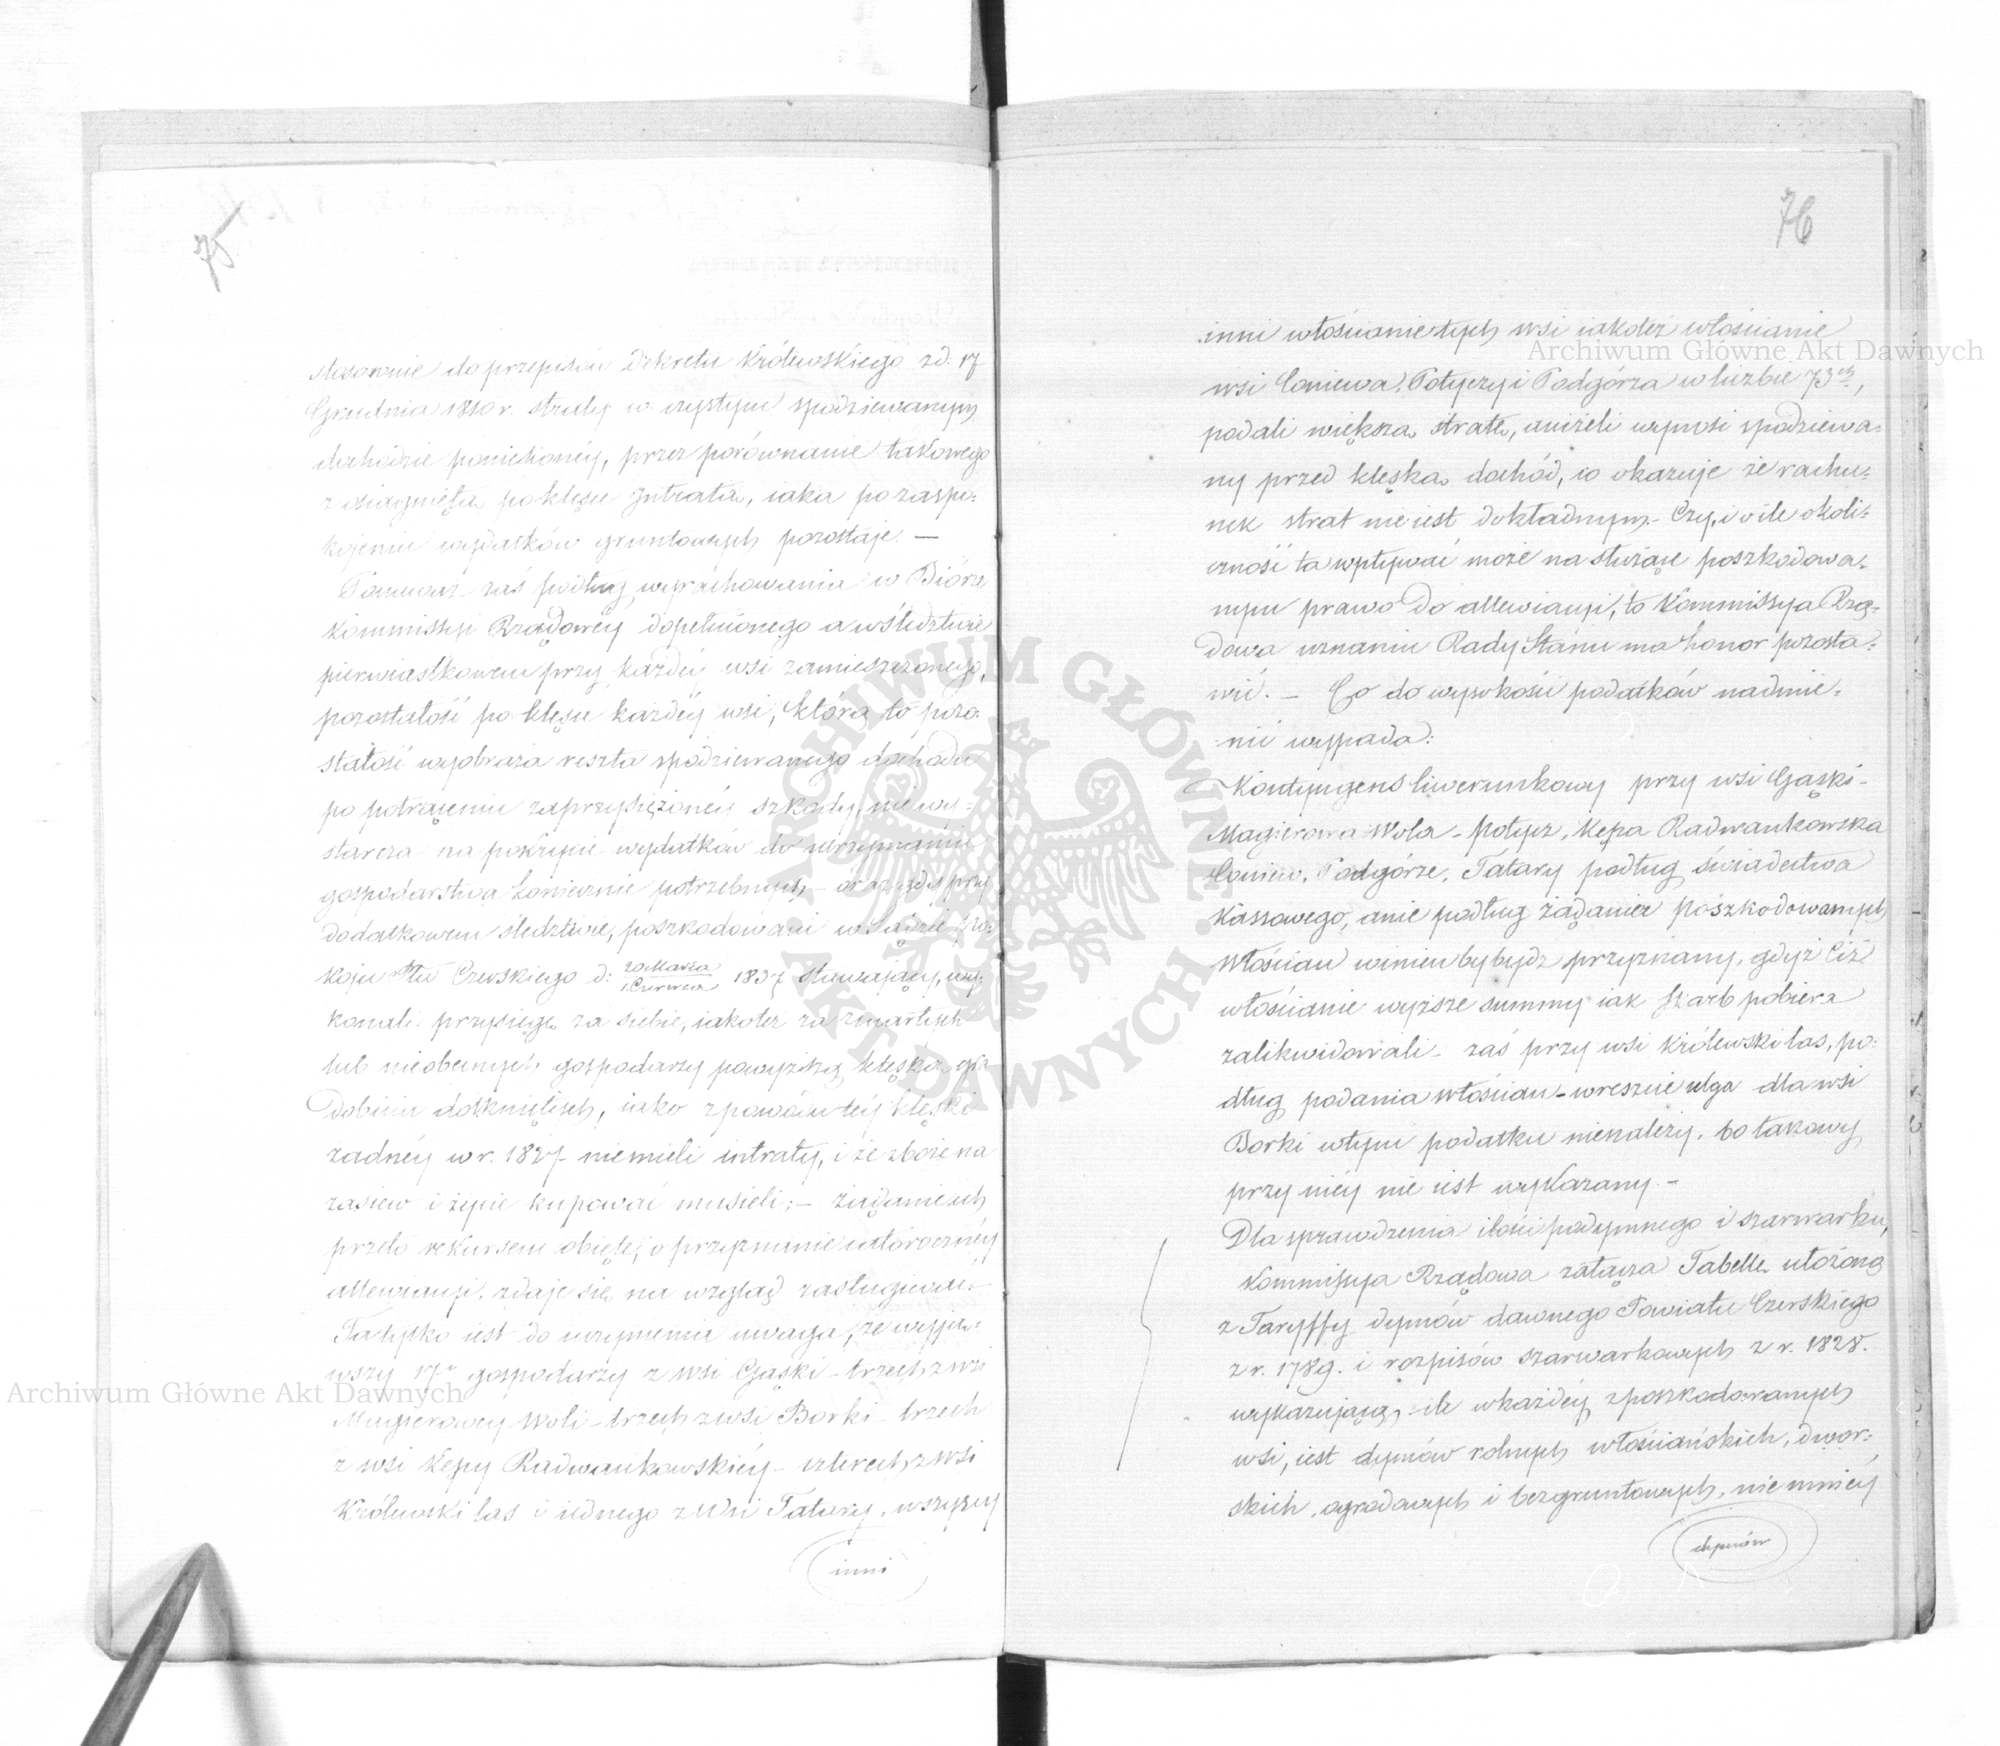 75
stosownie do przepisów Dekretu Królewskiego z d. 17
Grudnia 1810 r. straty w czystym spodziewanym
dochodzie poniesionéy, przez porównanie takowego
z osiągniętą po klęsce Intratą, iaka po zaspo=
kojeniu wydatków gruntowych pozostaje. —
Ponieważ zaś podług wyrachowania w Biórze
Kommissyi Rządowéy dopełnionego a w śledztwie
pierwiastkowem przy każdéy wsi zamieszczonego,
pozostałość po klęsce każdéy wsi, którą to pozo=
stałość wyobraża reszta spodziewanego dochodu
po potrąceniu zaprzysiężonéy szkody, nie wy=
starcza na pokrycie wydatków do utrzymania
gospodarstwa koniecznie potrzebnych – oraz gdy przy
dodatkowem śledztwie, poszkodowani w Sądzie Po=
koju Ptu Czerskiego d: 20 Maja / 1 Czerwca 1837 stawający, wy=
konali przysięgę za siebie, iakoteż za zmarłych
lub nieobecnych gospodarzy powyższą klęską gra=
dobicia dotkniętych, iako z powodu téy klęski
żadnéy w r. 1827 nie mieli intraty, i że zboże na
zasiew i życie kupować musieli; – żądanie ich
przeto rekursem objęte, o przyznanie całorocznéy
allewiacyi, zdaje się na wzgląd zasługiwać.
Ta tylko iest do uczynienia uwaga, że wyjąw=
szy 17 gospodarzy z wsi Gąski – trzech z wsi
Magierowey Woli – trzech z wsi Borki – trzech
z wsi Kępy Radwankowskiéy – czterech z wsi
Królewski las i iednego z Wsi Tatary, wszyscy
inni
76
inni włościanie tych wsi iakoteż włościanie
wsi Coniewa, Potyczy i Podgórza w liczbie 73ch,
podali większą stratę, aniżeli wynosi spodziewa=
ny przed klęską dochód, co okazuje że rachu=
nek strat nie iest dokładnym. – Czy, i o ile okoli=
czność ta wpływać może na służące poszkodowa=
nym prawo do allewiacyi, to Kommissya Rzą=
dowa uznaniu Rady Stanu ma honor pozosta=
wić. – Co do wysokości podatków nadmie=
nić wypada:
Kontyngens liwerunkowy przy wsi Gąski –
Magierowa Wola – Potycz, Kępa Radwankowska
Coniew, Podgórze, Tatary podług świadectwa
Kassowego, a nie podług żądania poszkodowanych
Włościan winien by bydź przyznany, gdyż Ciż
włościanie wyższe summy iak Skarb pobiera
zalikwidowali – zaś przy wsi Królewski las, po=
dług podania włościan – wreszcie ulga dla wsi
Borki w tym podatku nienależy, bo takowy
przy niéy nie iest wykazany. –
Dla sprawdzenia ilości podymnego i szarwarku,
Kommissya Rządowa załącza Tabellę ułożoną
z Taryffy dymów dawnego Powiatu Czerskiego
z r. 1789. i rozpisów szarwarkowych z r. 1828.
wykazującą, ile w każdéy z poszkodowanych
wsi, iest dymów rolnych włościańskich, dwor=
skich, ogrodowych i bezgruntowych, nie mniéy
dymów
Archiwum Główne Akt Dawnych
Archiwum Główne Akt Dawnych
ARCHIWUM GŁÓWNE AKT DAWNYCH